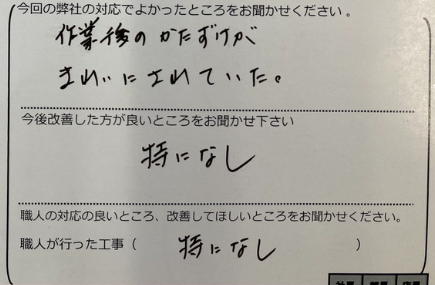 今回の弊社の対応でよかったところをお聞かせください。
作業後のかたずけが
きれいにされていた。
今後改善した方が良いところをお聞かせ下さい
特になし
職人の対応の良いところ、改善してほしいところをお聞かせください。
職人が行った工事（ 特になし ）